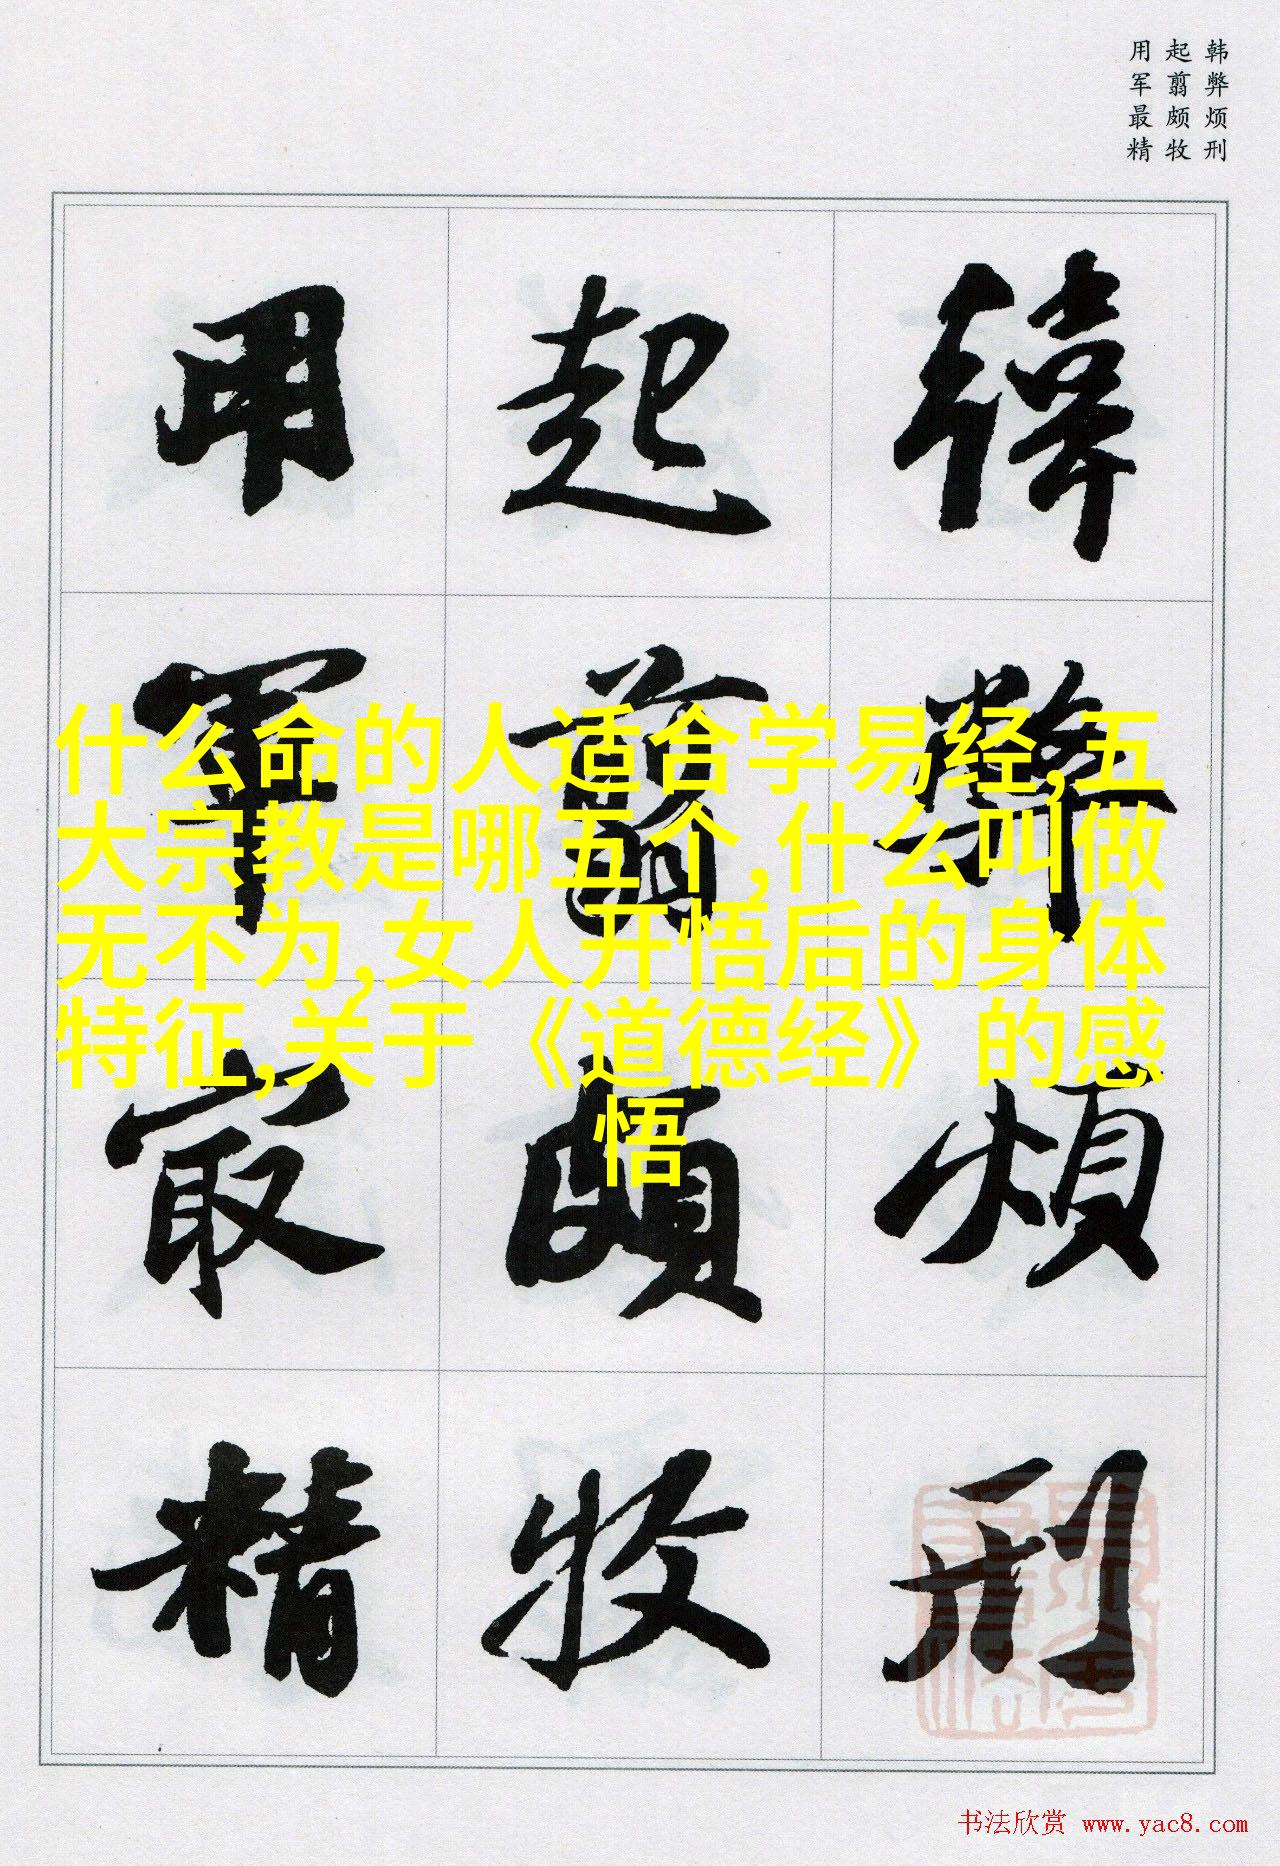 韩弊烦刑
起翦颇牧
用军最精
韩弊烦刑
起翦颇牧
用军最精
什么命的人适合学易经,五
大宗教是哪五个,什么叫做
无不为,女人开悟后的身体
特征,关于《道德经》的感
悟
书法欣赏 www.yac8.com